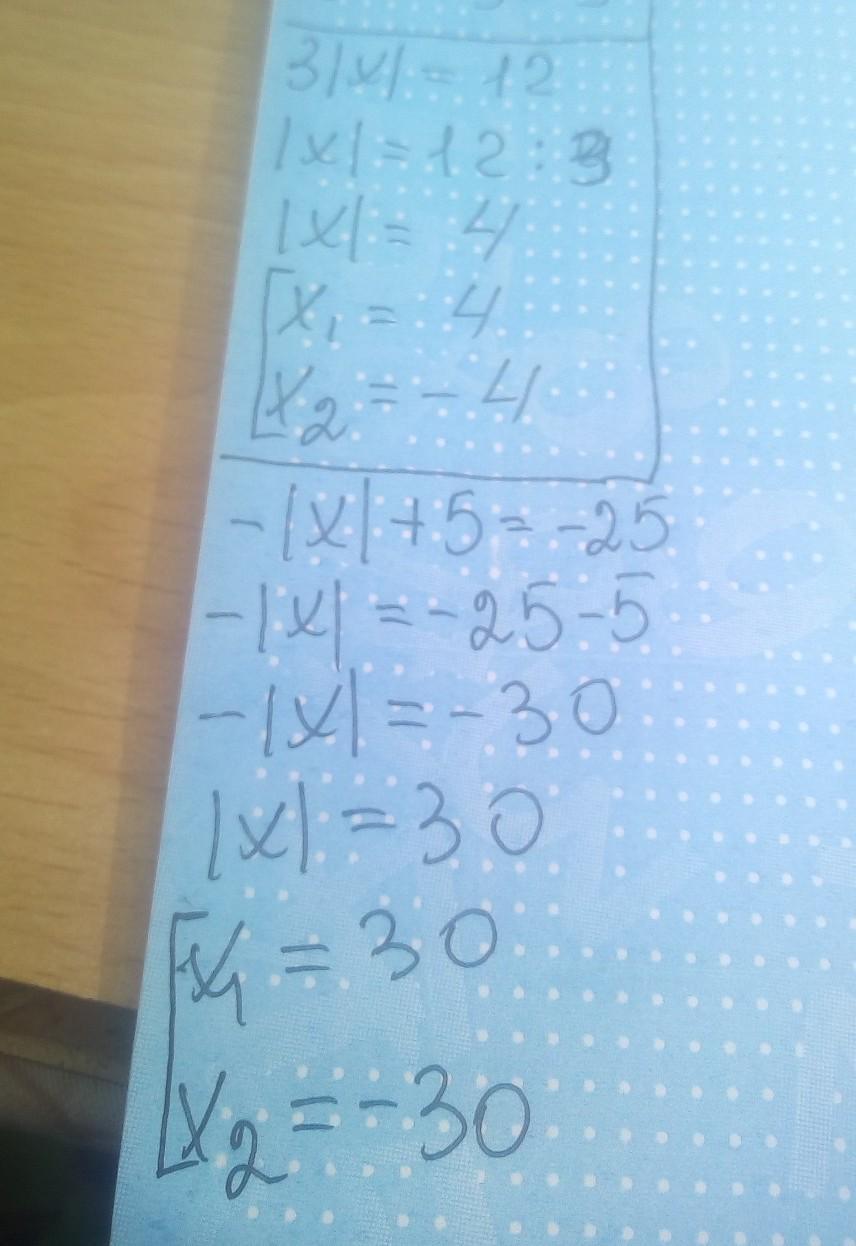 3|x| = 12
|x| = 12 : 3
|x| = 4
[x₁ = 4
[x₂ = - 4
-|x| + 5 = -25
-|x| = -25-5
-|x| = -30
|x| = 30
[x₁ = 30
[x₂ = -30